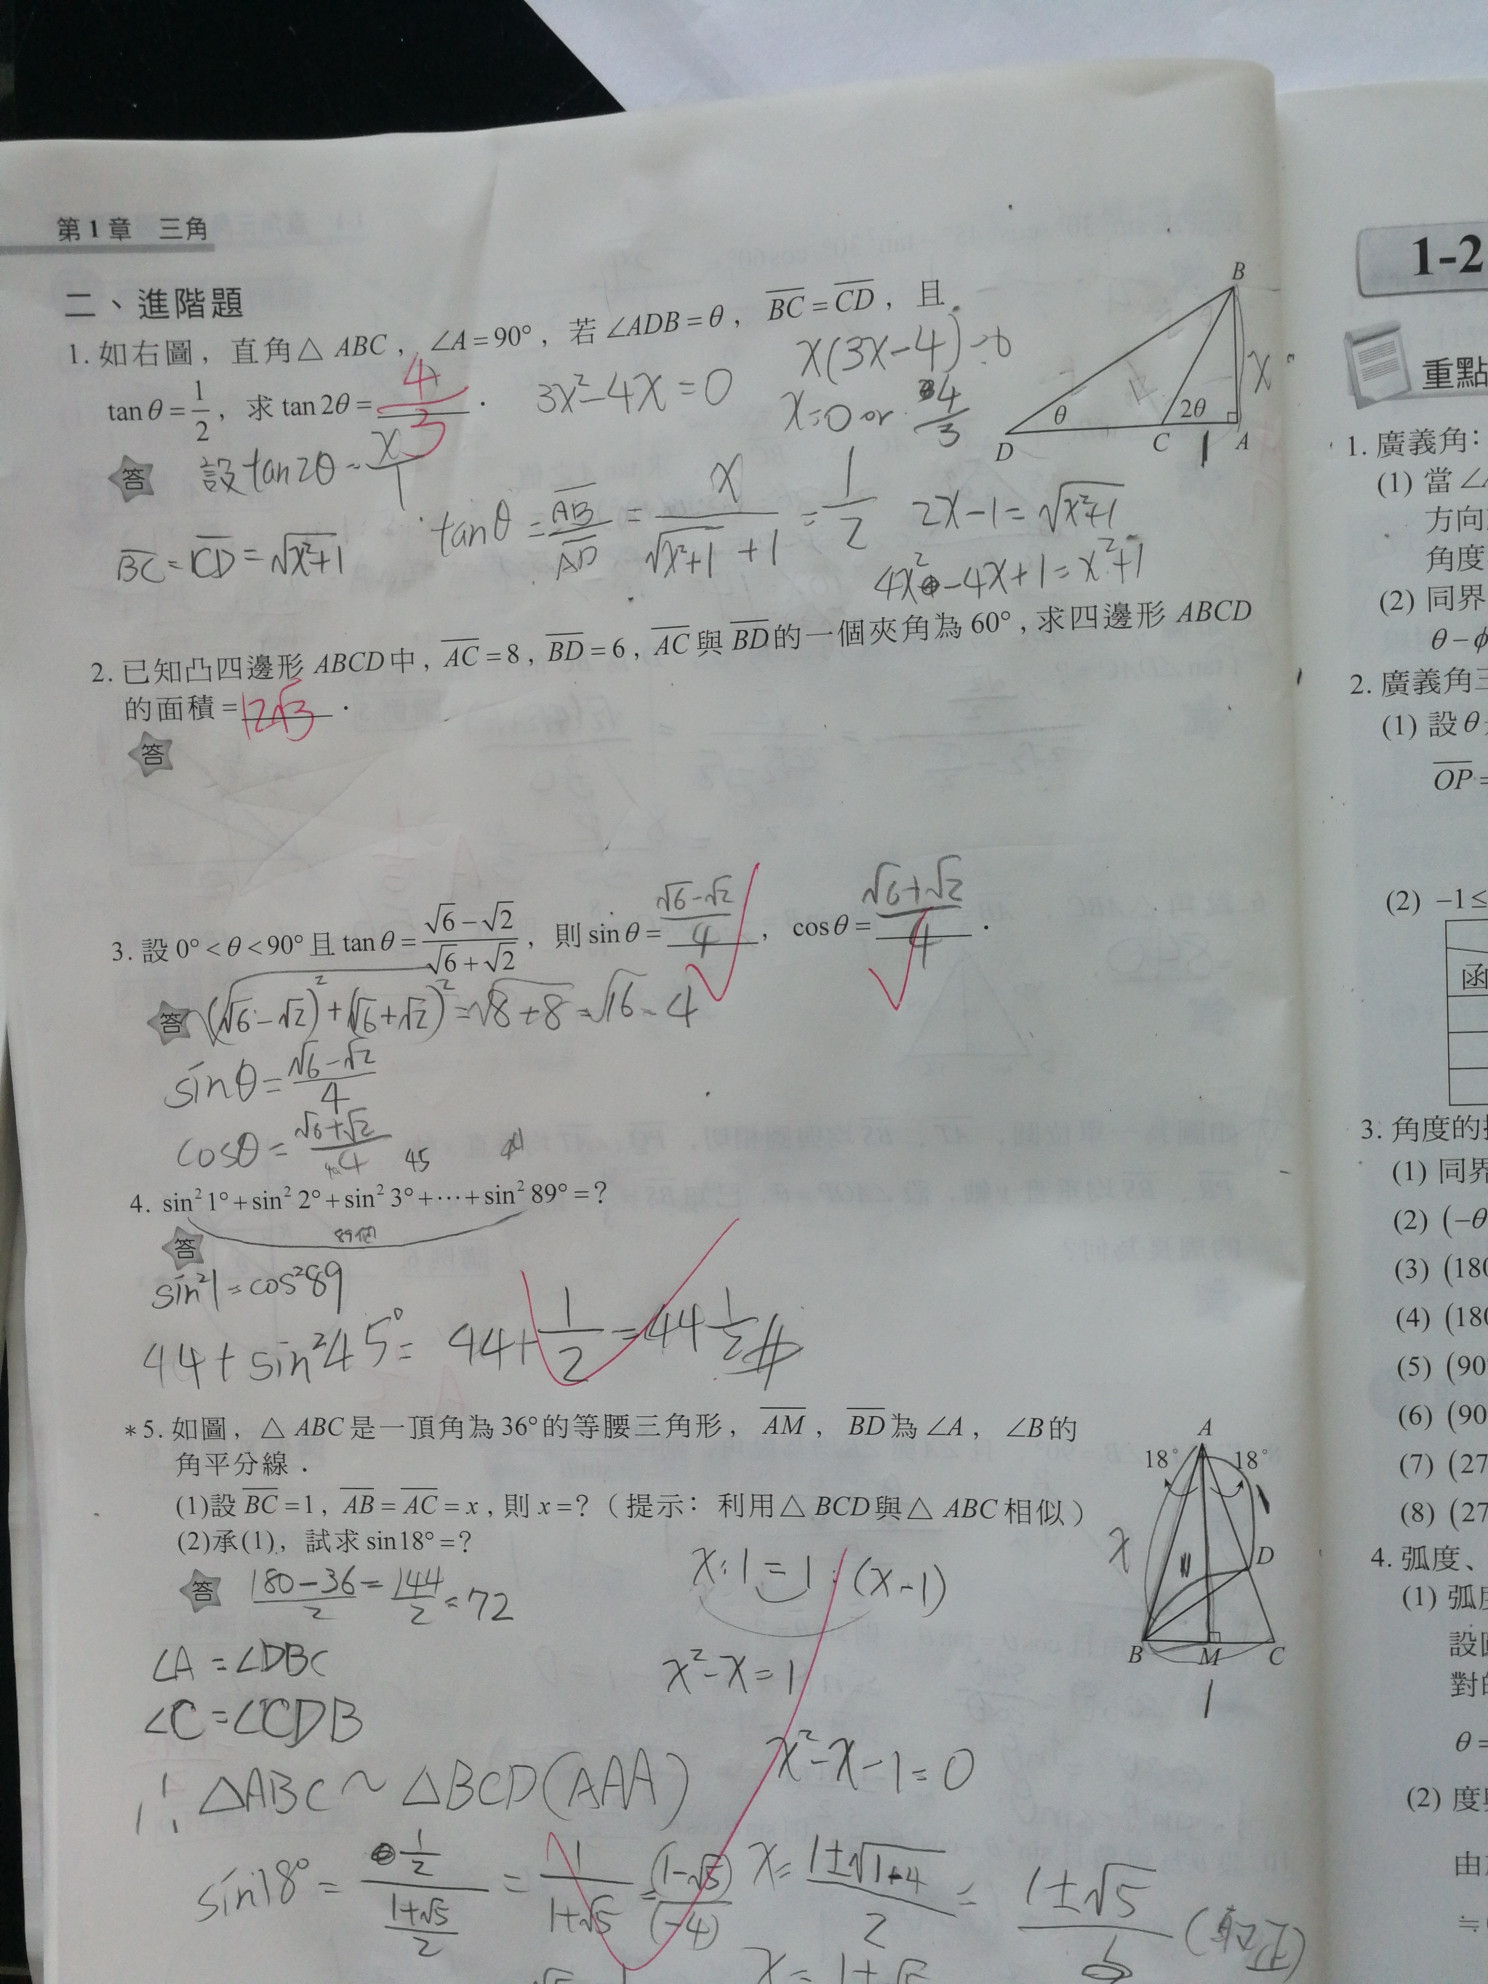 第1章 三角
二、進階題
1. 如右圖，直角△ABC，∠A=90°，若∠ADB=θ，BC=CD，且
tanθ=1/2，求tan2θ=4/3．
3x²-4x=0
x(3x-4)=0
x=0 or 4/3
B
x
θ
2θ
D
C
1
A
答 設tan2θ=x/1
BC=CD=√(x²+1)
tanθ=AB/AD=x/(√(x²+1)+1)=1/2
2x-1=√(x²+1)
4x²-4x+1=x²+1
2. 已知凸四邊形ABCD中，AC=8，BD=6，AC與BD的一個夾角為60°，求四邊形ABCD
的面積=12√3．
答
3. 設0°<θ<90°且tanθ=(√6-√2)/(√6+√2)，則sinθ=(√6-√2)/4，cosθ=(√6+√2)/4．
答 √((√6-√2)²+(√6+√2)²)=√(8+8)=√16=4
sinθ=(√6-√2)/4
cosθ=(√6+√2)/4
45
44
4. sin²1°+sin²2°+sin²3°+⋯+sin²89°=？
89個
答
sin²1=cos²89
44+sin²45°=44+1/2=44 1/2 #
*5. 如圖，△ABC是一頂角為36°的等腰三角形，AM，BD為∠A，∠B的
角平分線．
(1)設BC=1，AB=AC=x，則x=？（提示：利用△BCD與△ABC相似）
(2)承(1)，試求sin18°=？
A
18°
18°
1
x
D
B
M
C
1
答 (180-36)/2=144/2=72
x:1=1:(x-1)
∠A=∠DBC
x²-x=1
∠C=∠CDB
x²-x-1=0
∴△ABC~△BCD(AAA)
sin18°=(1/2)/((1+√5)/2)=1/(1+√5)=(1-√5)/(-4)
x=(1±√(1+4))/2=(1±√5)/2
1-2
重點
1. 廣義角：
(1) 當∠
方向
角度
(2) 同界
θ-ϕ
2. 廣義角三
(1) 設θ
OP=
(2) -1≤
函
3. 角度的
(1) 同界
(2) (-θ
(3) (180
(4) (180
(5) (90
(6) (90
(7) (27
(8) (27
4. 弧度、
(1) 弧度
設
對的
θ=
(2) 度
由